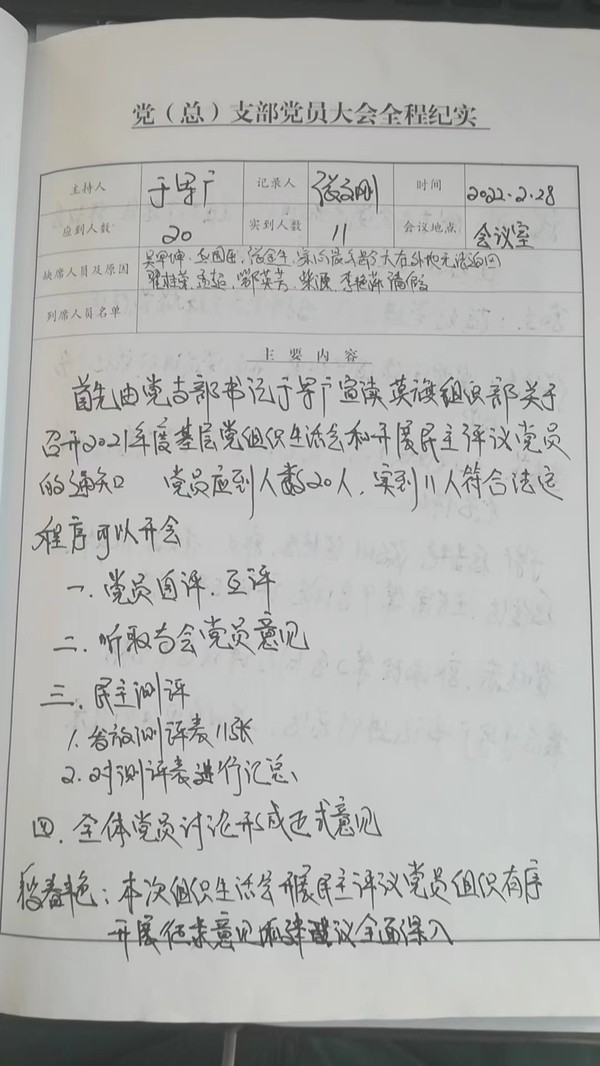 党（总）支部党员大会全程纪实
主持人 于学广 记录人 张文刚 时间 2022.2.28
应到人数 20 实到人数 11 会议地点 会议室
缺席人员及原因 大在外地无法返回
孟超 英芳 李艳萍
到席人员名单
主要内容
首先由党支部书记于学广宣读莫旗组织部关于
召开2021年度基层党组织生活会和开展民主评议党员
的通知 党员应到人数20人，实到11人符合法定
程序可以开会
一.党员自评.互评
二.听取与会党员意见
三.民主测评
1.发放测评表11张
2.对测评表进行汇总
四.全体党员讨论形成正式意见
本次组织生活会开展民主评议党员组织有序
开展征求意见 建议全面深入